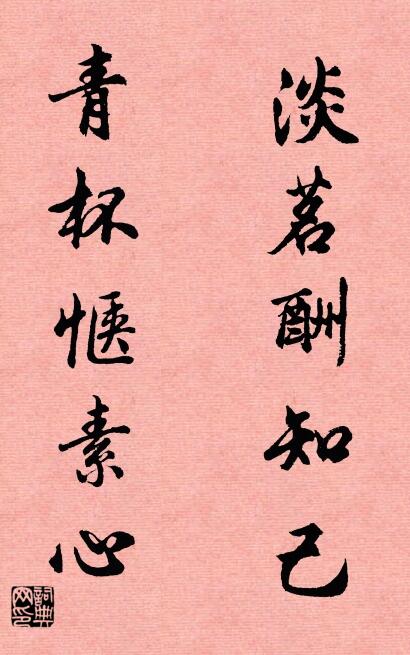 淡茗酬知己
青杯愜素心
詞典
网印